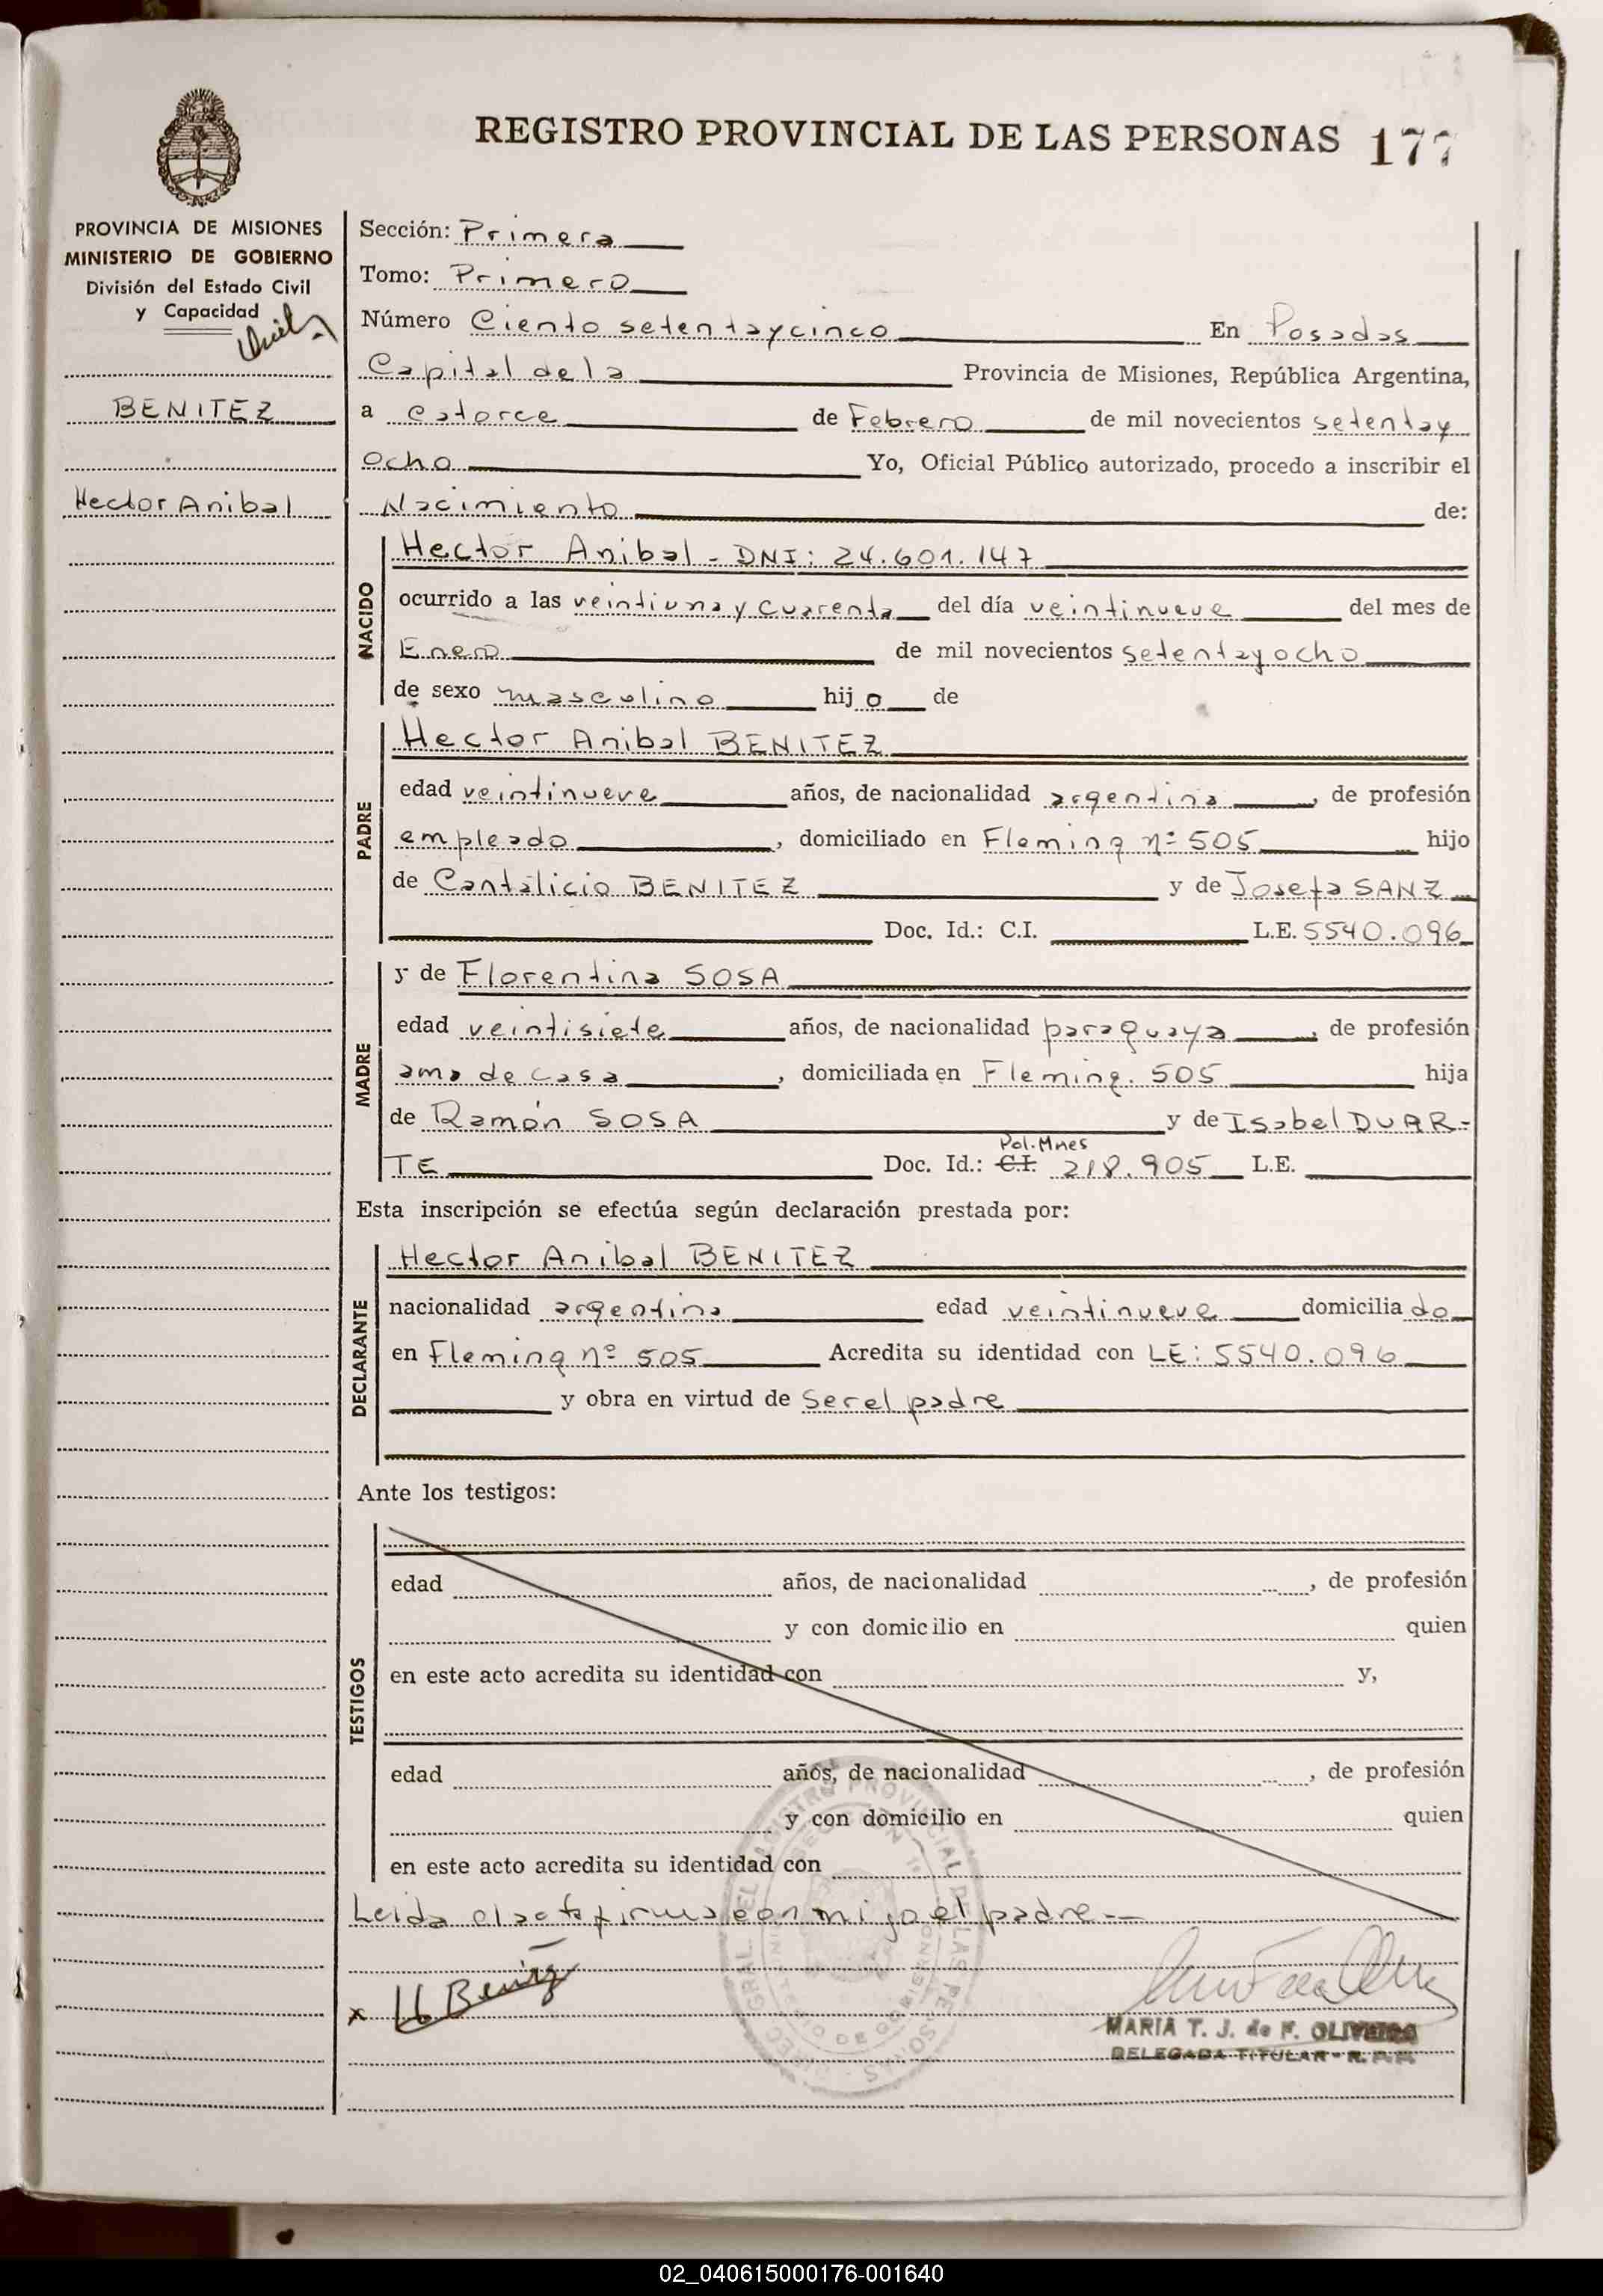 REGISTRO PROVINCIAL DE LAS PERSONAS 177
PROVINCIA DE MISIONES
MINISTERIO DE GOBIERNO
División del Estado Civil
y Capacidad
BENITEZ
Hector Anibal
Sección: Primera
Tomo: Primero
Número Ciento setentaycinco En Posadas
Capital de la Provincia de Misiones, República Argentina,
a catorce de Febrero de mil novecientos setentay
ocho Yo, Oficial Público autorizado, procedo a inscribir el
Nacimiento de:
NACIDO
Hector Anibal - DNI: 24.601.147
ocurrido a las veintiuna y cuarenta del día veintinueve del mes de
Enero de mil novecientos setentayocho
de sexo masculino hijo de
PADRE
Hector Anibal BENITEZ
edad veintinueve años, de nacionalidad argentina, de profesión
empleado, domiciliado en Fleming nº 505 hijo
de Cantalicio BENITEZ y de Josefa SANZ
Doc. Id.: C.I. L.E. 5540.096
MADRE
y de Florentina SOSA
edad veintisiete años, de nacionalidad paraguaya, de profesión
ama de casa, domiciliada en Fleming. 505 hija
de Ramón SOSA y de Isabel DUAR-
Pol. Mnes
TE Doc. Id.: C.I. 218.905 L.E.
Esta inscripción se efectúa según declaración prestada por:
DECLARANTE
Hector Anibal BENITEZ
nacionalidad argentina edad veintinueve domiciliado
en Fleming nº 505 Acredita su identidad con LE: 5540.096
y obra en virtud de ser el padre
Ante los testigos:
TESTIGOS
edad años, de nacionalidad , de profesión
y con domicilio en quien
en este acto acredita su identidad con y,
edad años, de nacionalidad , de profesión
y con domicilio en quien
en este acto acredita su identidad con
Leida el acta firma con migo el padre.—
x H Benitez
MARIA T. J. de F. OLIVEIRA
DELEGADA TITULAR - R. P. P.
02_040615000176-001640